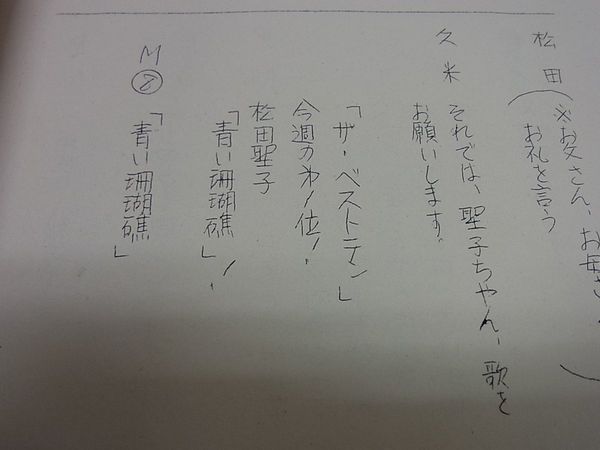 松田
(※お父さん、お母さ
お礼を言う
久米 それでは、聖子ちゃん、歌を
お願いします。
「ザ・ベストテン」
今週の第1位!
松田聖子
「青い珊瑚礁」!
M⑧ 「青い珊瑚礁」